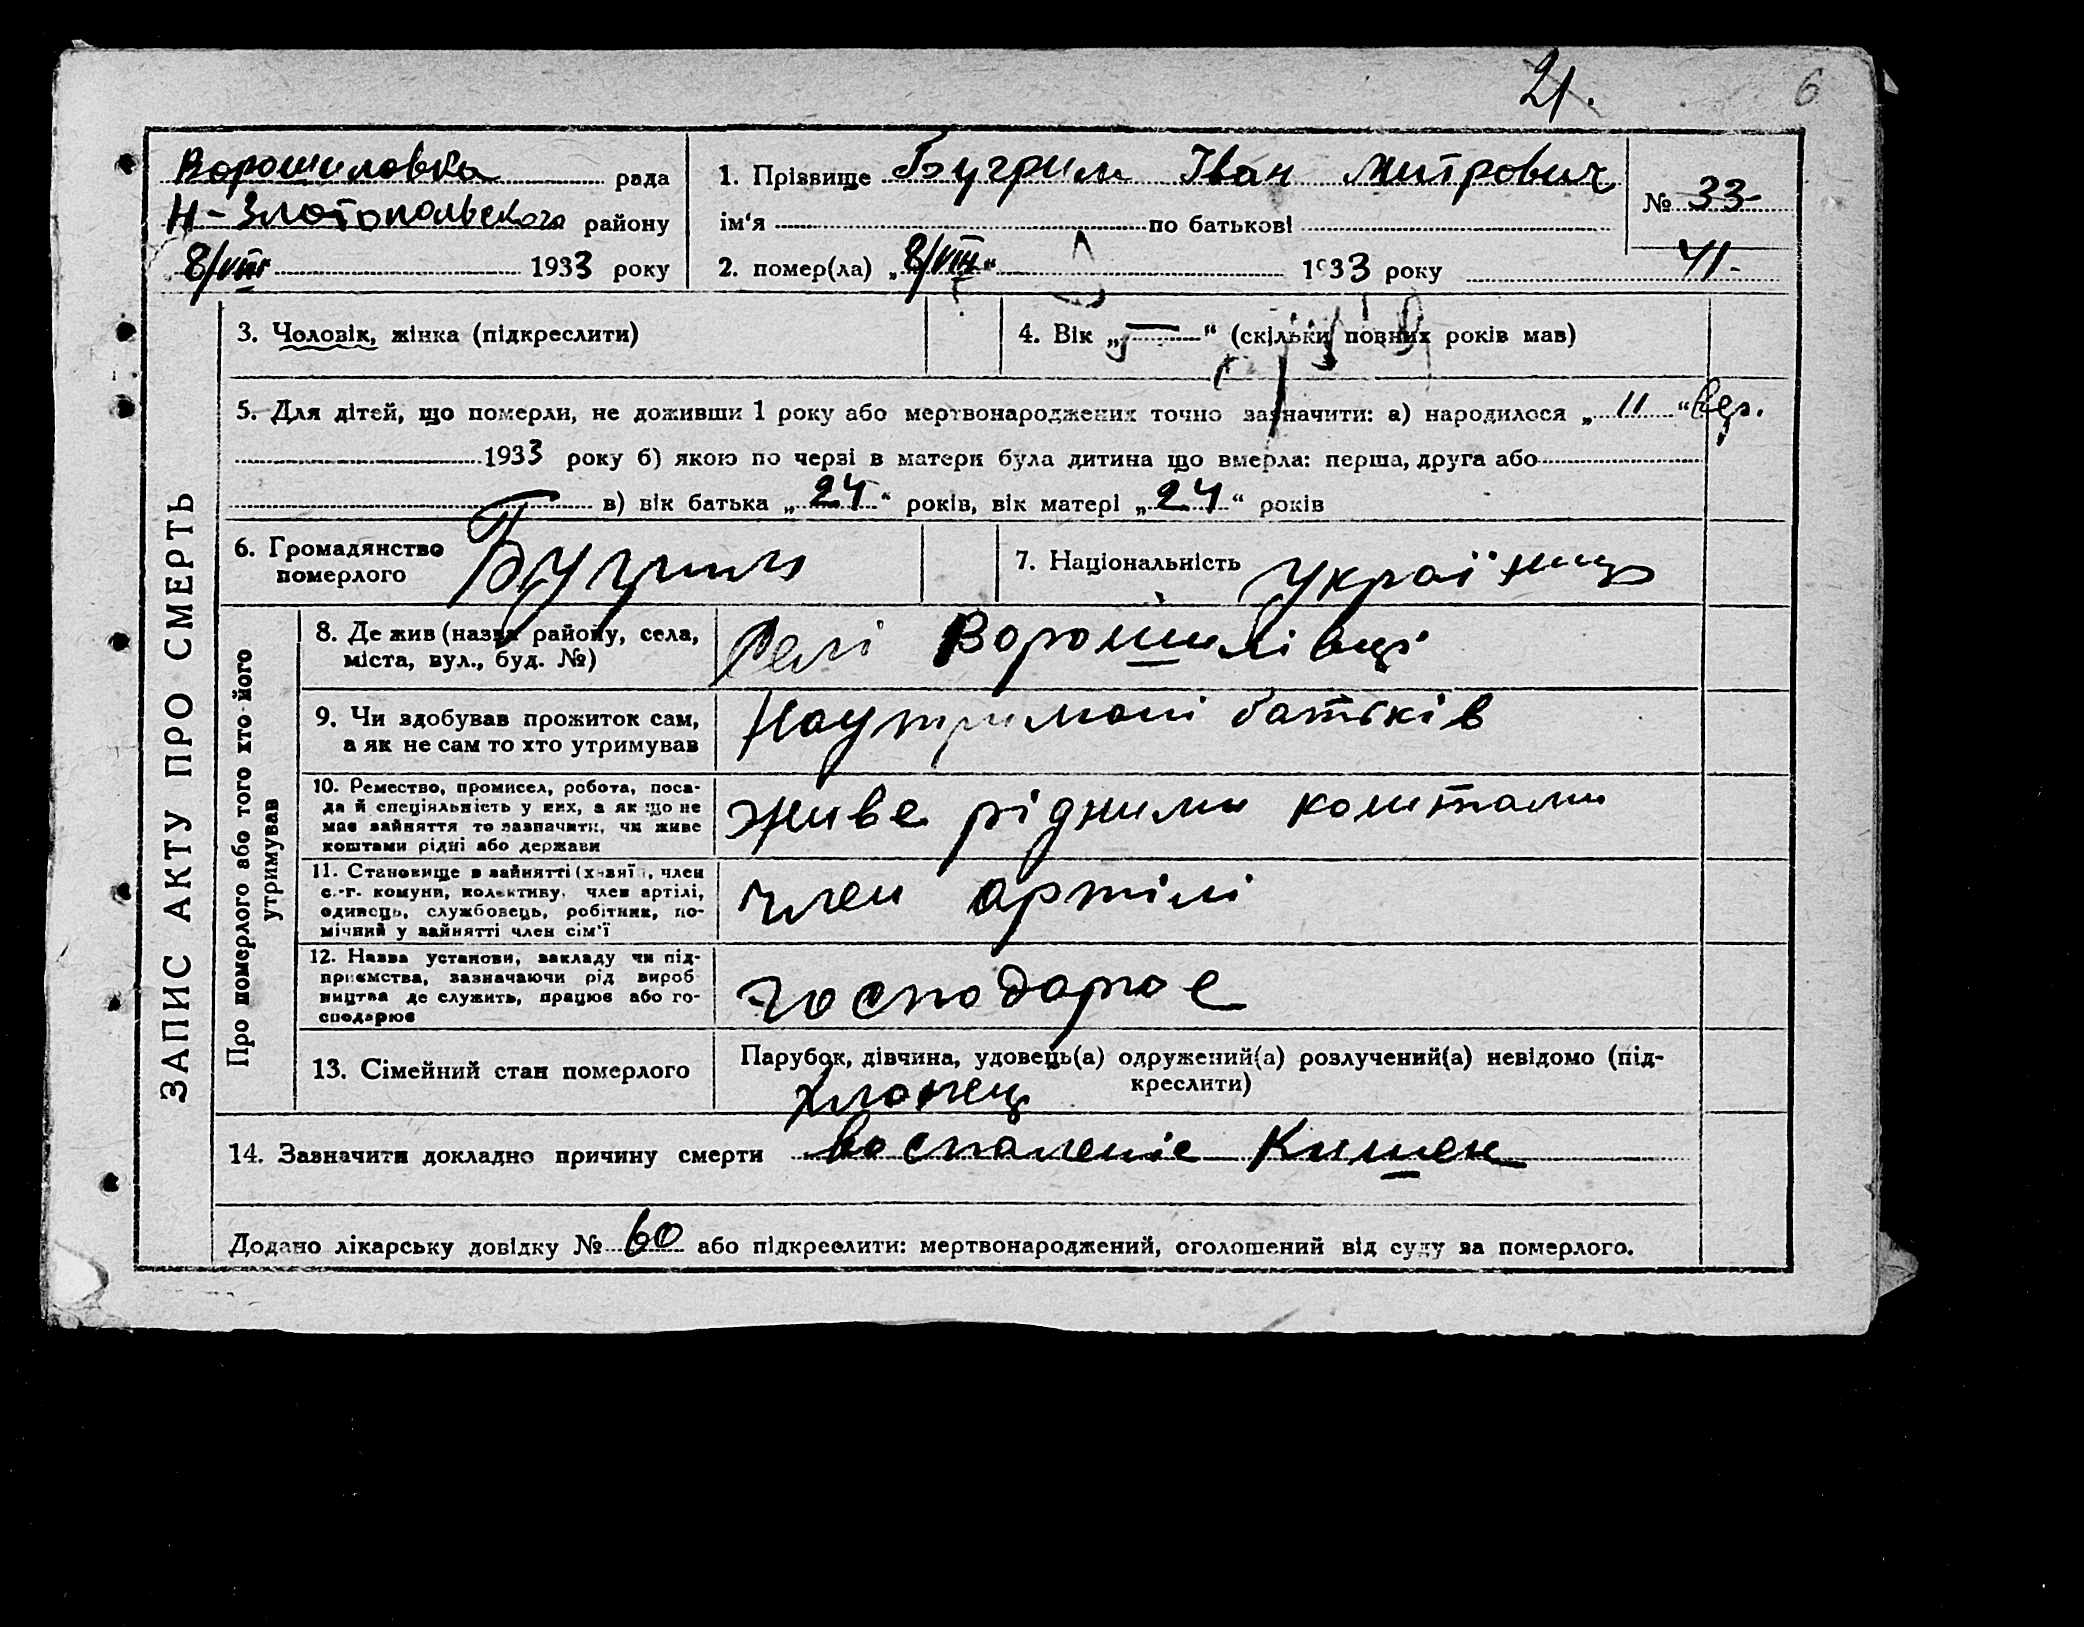 21.
6
Ворошиловка рада
Н-Злотопольского району
8/VIII 1933 року
1. Прізвище Бугрим Іван Митрович
ім'я по батькові
2. помер(ла) „8/VIII“ 1933 року
№ 33-
41.
ЗАПИС АКТУ ПРО СМЕРТЬ
3. Чоловік, жінка (підкреслити)
4. Вік „—“ (скільки повних років мав)
5. Для дітей, що померли, не доживши 1 року або мертвонароджених точно зазначити: а) народилося „11“
1933 року б) якою по черзі в матери була дитина що вмерла: перша, друга або
в) вік батька „24“ років, вік матері „24“ років
6. Громадянство
померлого
Бугрим
7. Національність українць
Про померлого або того хто його
утримував
8. Де жив (назва району, села,
міста, вул., буд. №)
Селі Ворошилівці
9. Чи здобував прожиток сам,
а як не сам то хто утримував
Наутримані батьків
10. Ремество, промисел, робота, поса-
да й спеціяльність у них, а як що не
має зайняття то зазначити, чи живе
коштами рідні або держави
живе рідними коштами
11. Становище в зайнятті (хазяїн, член
с.-г. комуни, колективу, член артілі,
одинець, службовець, робітник, по-
мічний у зайнятті член сім'ї
член артілі
12. Назва установи, закладу чи під-
приємства, зазначаючи рід вироб-
ництва де служить, працює або го-
сподарює
господарює
13. Сімейний стан померлого
Парубок, дівчина, удовець(а) одружений(а) розлучений(а) невідомо (під-
креслити)
хлопець
14. Зазначити докладно причину смерти воспаленіе Кишек
Додано лікарську довідку № 60 або підкреслити: мертвонароджений, оголошений від суду за померлого.